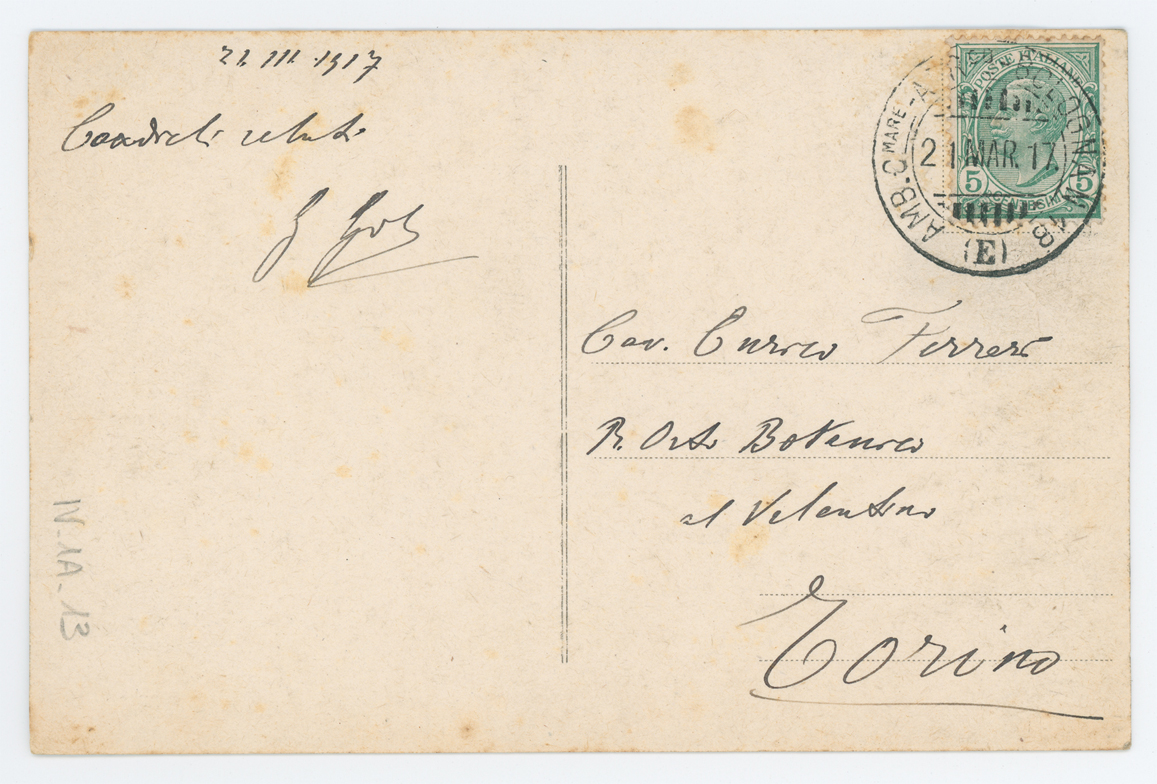 21 III 1917
Cordiali saluti
Cav. Enrico Ferrari
R. Orto Botanico
al Valentino
Torino
POSTE ITALIANE
5 5
CENTESIMI
AMB. C MARE - A
BOLOGNA
21 MAR. 17
(E)
IV. 1A. 13